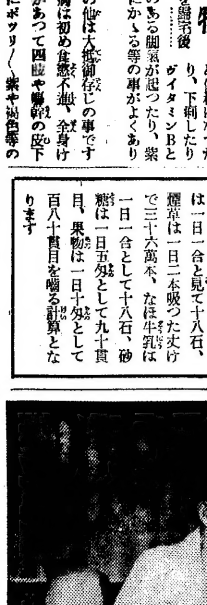 を歸宅後
り、下痢したり
ヴイタミンBと
のある脚氣が起つたり、紫
にかゝる等の事がよくあり
の他は大抵御存じの事です
病は初め食慾不進、全身け
があつて四肢や軀幹の皮下
にポツリ〱紫や褐色等の
は一日一合と見て十八石、
煙草は一日二本吸つた丈け
で三十六萬本、なほ牛乳は
一日一合として十八石、砂
糖は一日五匁として九十貫
目、果物は一日十匁として
百八十貫目を嚙る計算とな
ります